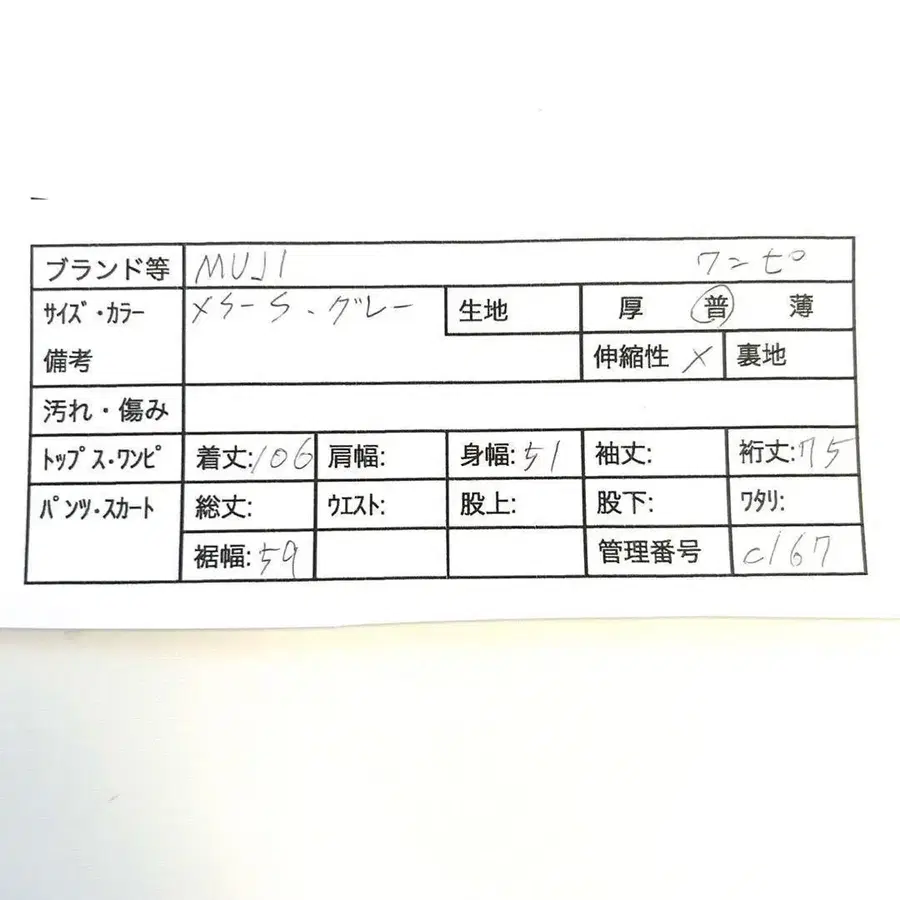 ブランド等 MUJI ワンピ
サイズ・カラー XS-S、グレー 生地 厚 普 薄
備考 伸縮性 × 裏地
汚れ・傷み
トップス・ワンピ 着丈:106 肩幅: 身幅:51 袖丈: 裄丈:75
パンツ・スカート 総丈: ウエスト: 股上: 股下: ワタリ:
裾幅:59 管理番号 c167